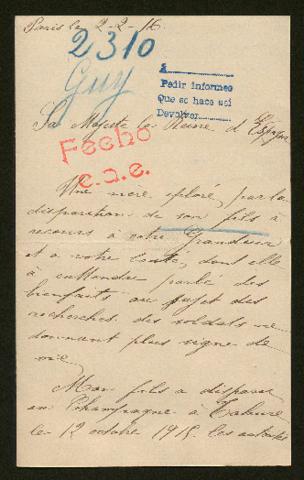 Paris le 2-2-16.
2310
Guy
A
Pedir informes
Que se hace así
Devolver
Sa Majesté la Reine d'Espagne
Fecho
c.a.e.
Une mère éplorée, par la
disparition de son fils à
recours à votre Grandeur
et à votre bonté, dont elle
à entendre parlé des
bienfaits au sujet des
recherches des soldats ne
donnant plus signe de
vie
Mon fils a disparu
en Champagne à Tahure
le 12 octobre 1915. les autorités